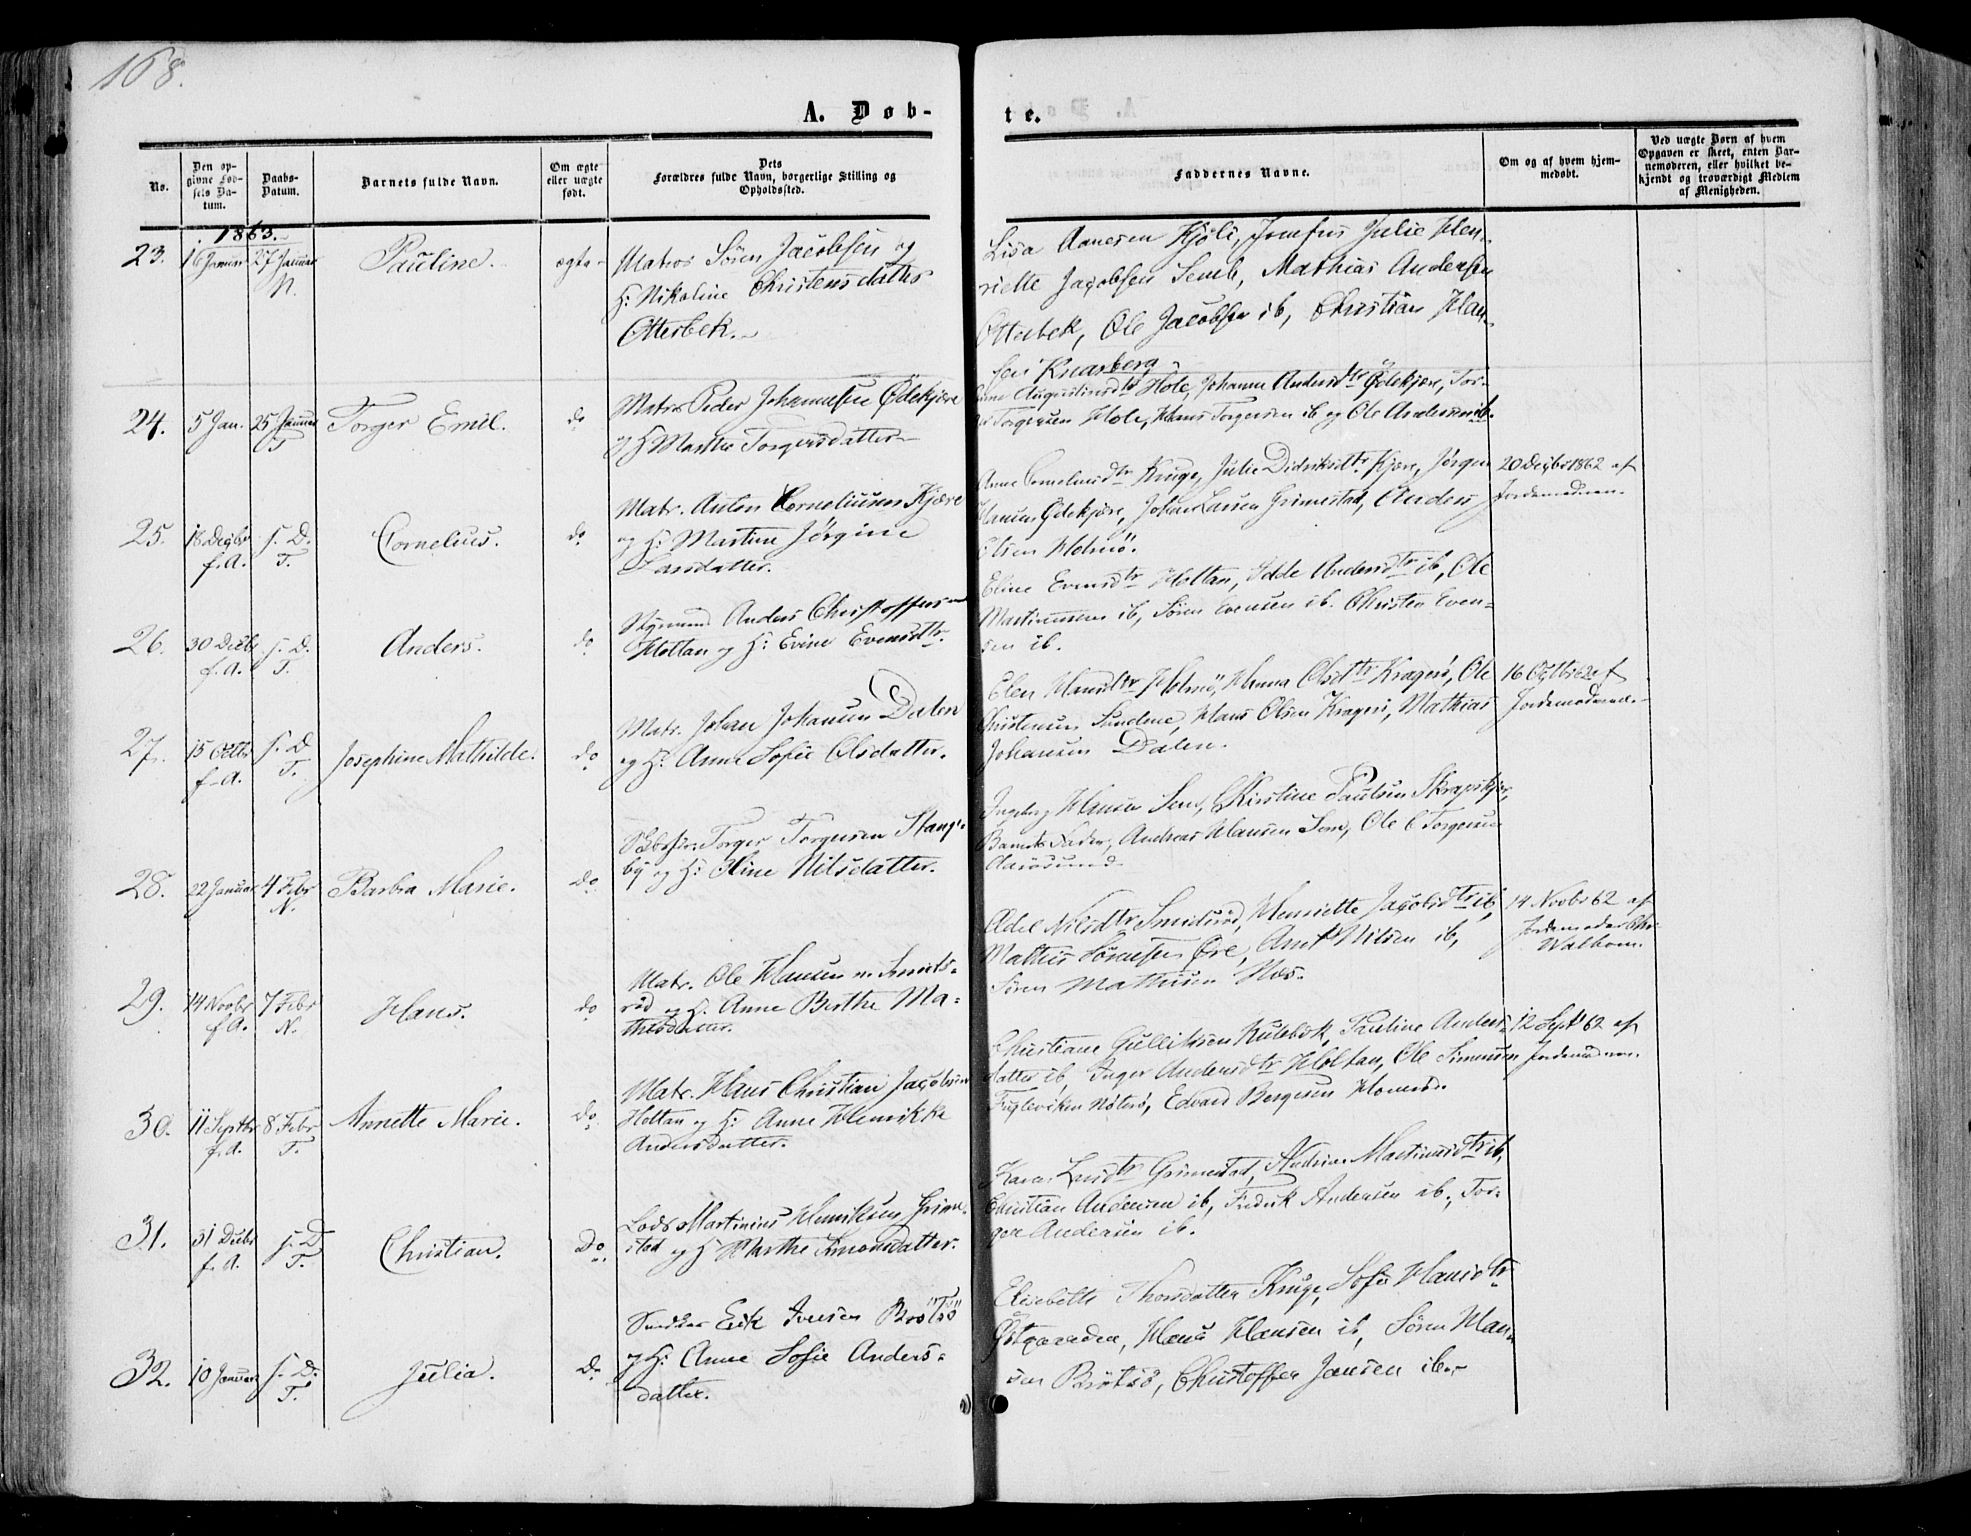 168.
A. Døb-
te.
No.
Den op-
givne Fød-
sels Da-
tum.
Daabs-
Datum.
Barnets fulde Navn.
Om ægte
eller uægte
født.
Dets
Forældres fulde Navn, borgerlige Stilling og
Opholdssted.
Faddernes Navne.
Om og af hvem hjem-
medøbt.
Ved uægte Børn af hvem
Opgaven er skeet, enten Bar-
nemoderen, eller hvilket be-
kjendt og troværdigt Medlem
af Menigheden.
1863.
23. 16 Januar 27 Januar
N.
Pauline.
ægte
Matros Sören Jacobsen og
H: Nikoline Christensdatter
Otterbek.
Lisa Aanesen Kjöle, Jomfru Julie Hen-
riette Jacobsen Semb, Mathias Andersen
Otterbek, Ole Jacobsen ib, Christian Han-
sen Knarberg
24. 5 Jan. 25 Januar
T
Torger Emil.
do
Matr. Peder Johannesen Ödekjære
og H Marthe Torgersdatter
Augustinusdtr Hole, Johanne Andersdtr Ödekjære, Tor-
Torgersen Hole, Hans Torgersen ib og Ole Andersen ib.
25. 18 Decbr
f. A.
s. D.
T.
Cornelius.
do
Matr. Anton Corneliusen Kjære
og H: Martine Jörgine
Larsdatter.
Anne Corneliusdtr Kruge, Julie Didriksdtr Kjære, Jörgen
Hansen Ödekjære, Johan Larsen Grimestad, Anders
Olsen Holmö.
20 Decbr 1862 af
Jordemoderen.
26. 30 Decbr
f. A.
s. D.
T.
Anders.
do
Anders Christoffersen
Holtan og H: Evine Evensdtr.
Eline Evensdtr Holtan, Andersdtr ib, Ole
Martinusen ib, Sören Evensen ib. Christen Even-
sen ib.
27. 15 Octbr
f. A.
s. D
T.
Josephine Mathilde.
do
Matr. Johan Johansen Dalen
og H: Anne Sofie Olsdatter.
Elen Hansdtr Holmö, Hanna Olsdtr Kragerö, Ole
Christensen Sundene, Hans Olsen Kragerö, Mathias
Johansen Dalen.
16 Octbr 62 af
Jordemoderen.
28. 22 Januar 4 Febr
N.
Barbra Marie.
do
Torger Torgersen Stange-
by og H: Nilsdatter.
Ingeborg Hansen Sem, Kirstine Paulsen
Barnets Fader, Andreas Hansen Sem, Ole C Torgersen
29. 14 Novbr
f. A.
7 Febr
N.
Hans.
do
Matr. Ole Hansen Smids-
röd og H. Anne Berthe Ma-
thisdatter.
Nilsdtr Smidsröd, Henriette Jacobsdtr ib,
Mathis Sörensen Öre, Nilsen ib,
Sören Mathisen
14 Novbr 62 af
Jordemoder
30. 11 Septbr
f. A.
8 Febr
T.
Annette Marie.
do
Matr. Hans Christian Jacobsen
Holtan og H: Anne Henrikke
Andersdatter.
Christiane Gulliksen Rulebök, Pauline Anders-
datter ib, Inger Andersdtr Holtan, Ole Simensen
Fugleviken Nöterö, Edvard Borgesen
12 Septr 62 af
Jordemoderen.
31. 31 Decbr
f. A.
s. D
T.
Christian.
Do
Lods Martinius Henriksen Grime-
stad og H Marthe Simonsdatter.
Karen Larsdtr Grimestad, Martinusdtr ib,
Christian Andersen ib, Fredrik Andersen ib, Tor-
ger Andersen ib.
32. 10 Januar
s. D.
T.
Julia.
Do
Erik Iversen Brötsö
og H: Anne Sofie Anders-
datter.
Elisabeth Thorsdatter Kruge, Sofie Hansdtr
Östgaarden, Hans Hansen ib, Sören Han-
sen Brötsö, Christoffer Jansen ib.